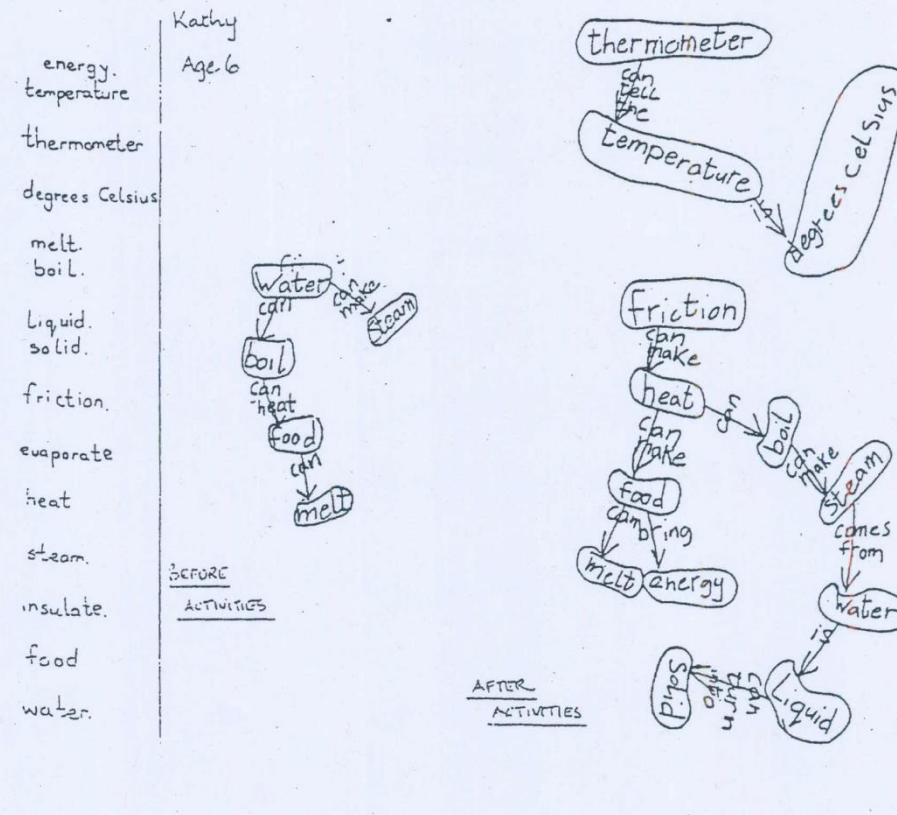 Kathy
Age 6
energy.
temperature
thermometer
degrees Celsius
melt.
boil.
Liquid.
solid.
friction.
evaporate
heat
steam.
insulate.
food
water.
water
can
boil
can
heat
food
can
melt
can
make
steam
BEFORE
ACTIVITIES
thermometer
can
tell
the
temperature
is
degrees celsius
friction
can
make
heat
can
make
food
can
melt
bring
energy
can
boil
can
make
steam
comes
from
water
is
Liquid
can
turn
into
Solid
AFTER
ACTIVITIES